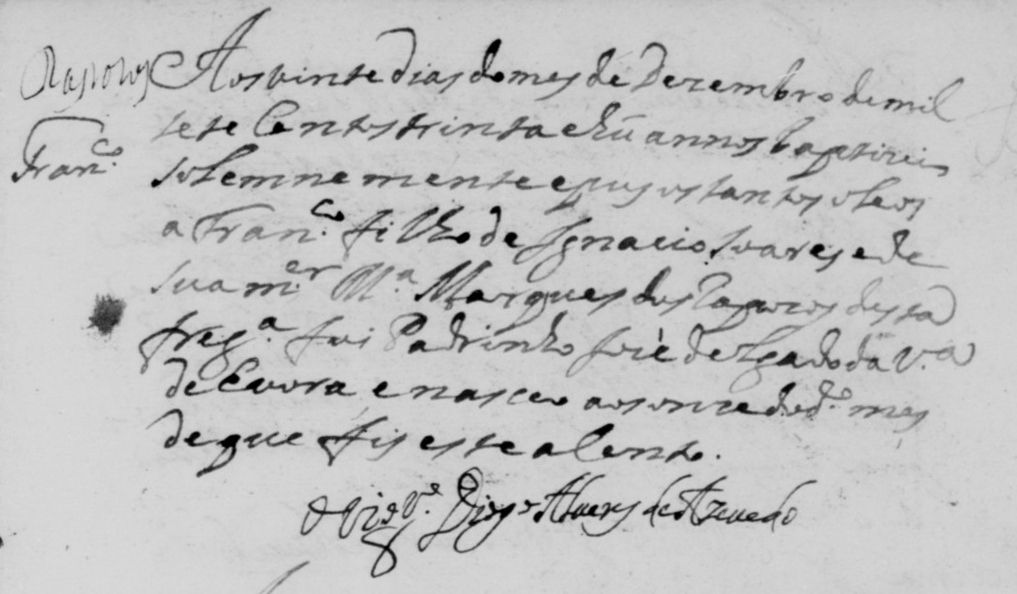 Rapozos
Fran.co
Aos vinte dias do mes de Dezembro de mil
sete Centos trinta e hũ annos baptizei
solemnemente e pus os santos oleos
a Fran.co filho de Ignacio Soares e de
sua m.er M.a Marques dos Rapozos desta
freg.a foi Padrinho José Delgado da V.a
de Evora e nasceo aos onze do d.o mes
de que fis este acento.
O Vig.ro Diogo Alvers de Azevedo